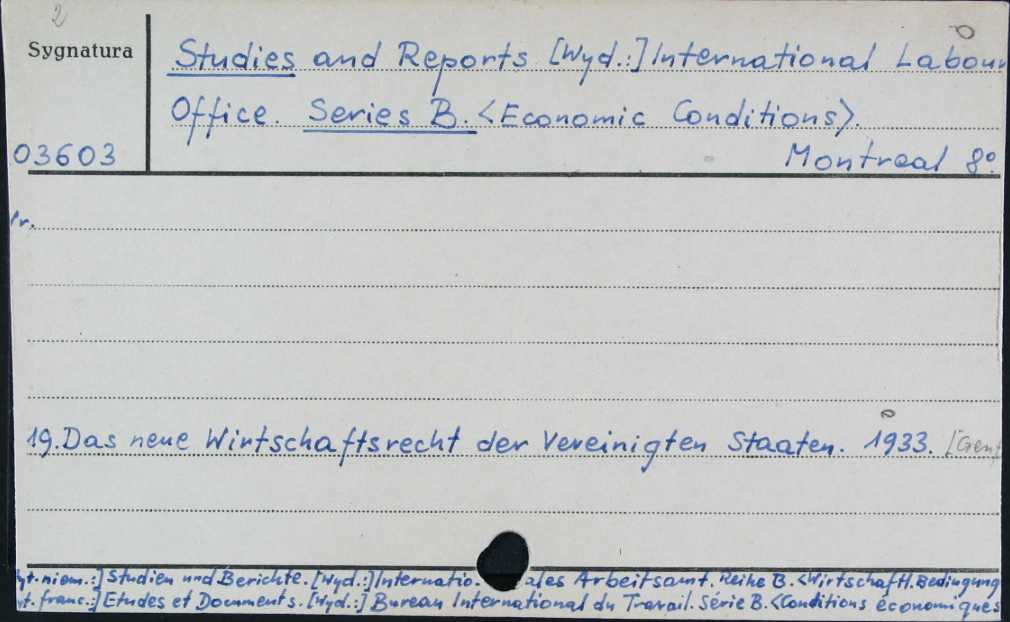 2
Sygnatura
Studies and Reports [Wyd.:] International Labour
Office. Series B. <Economic Conditions>.
03603 Montreal 8°.
19. Das neue Wirtschaftsrecht der Vereinigten Staaten. 1933. [Genf
yt. niem.:] Studien und Berichte. [Wyd.:] Internatio ales Arbeitsamt. Reihe B. <Wirtschaftl. Bedingung
yt. franc.:] Etudes et Documents. [Wyd.:] Bureau International du Travail. Série B. <Conditions économiques